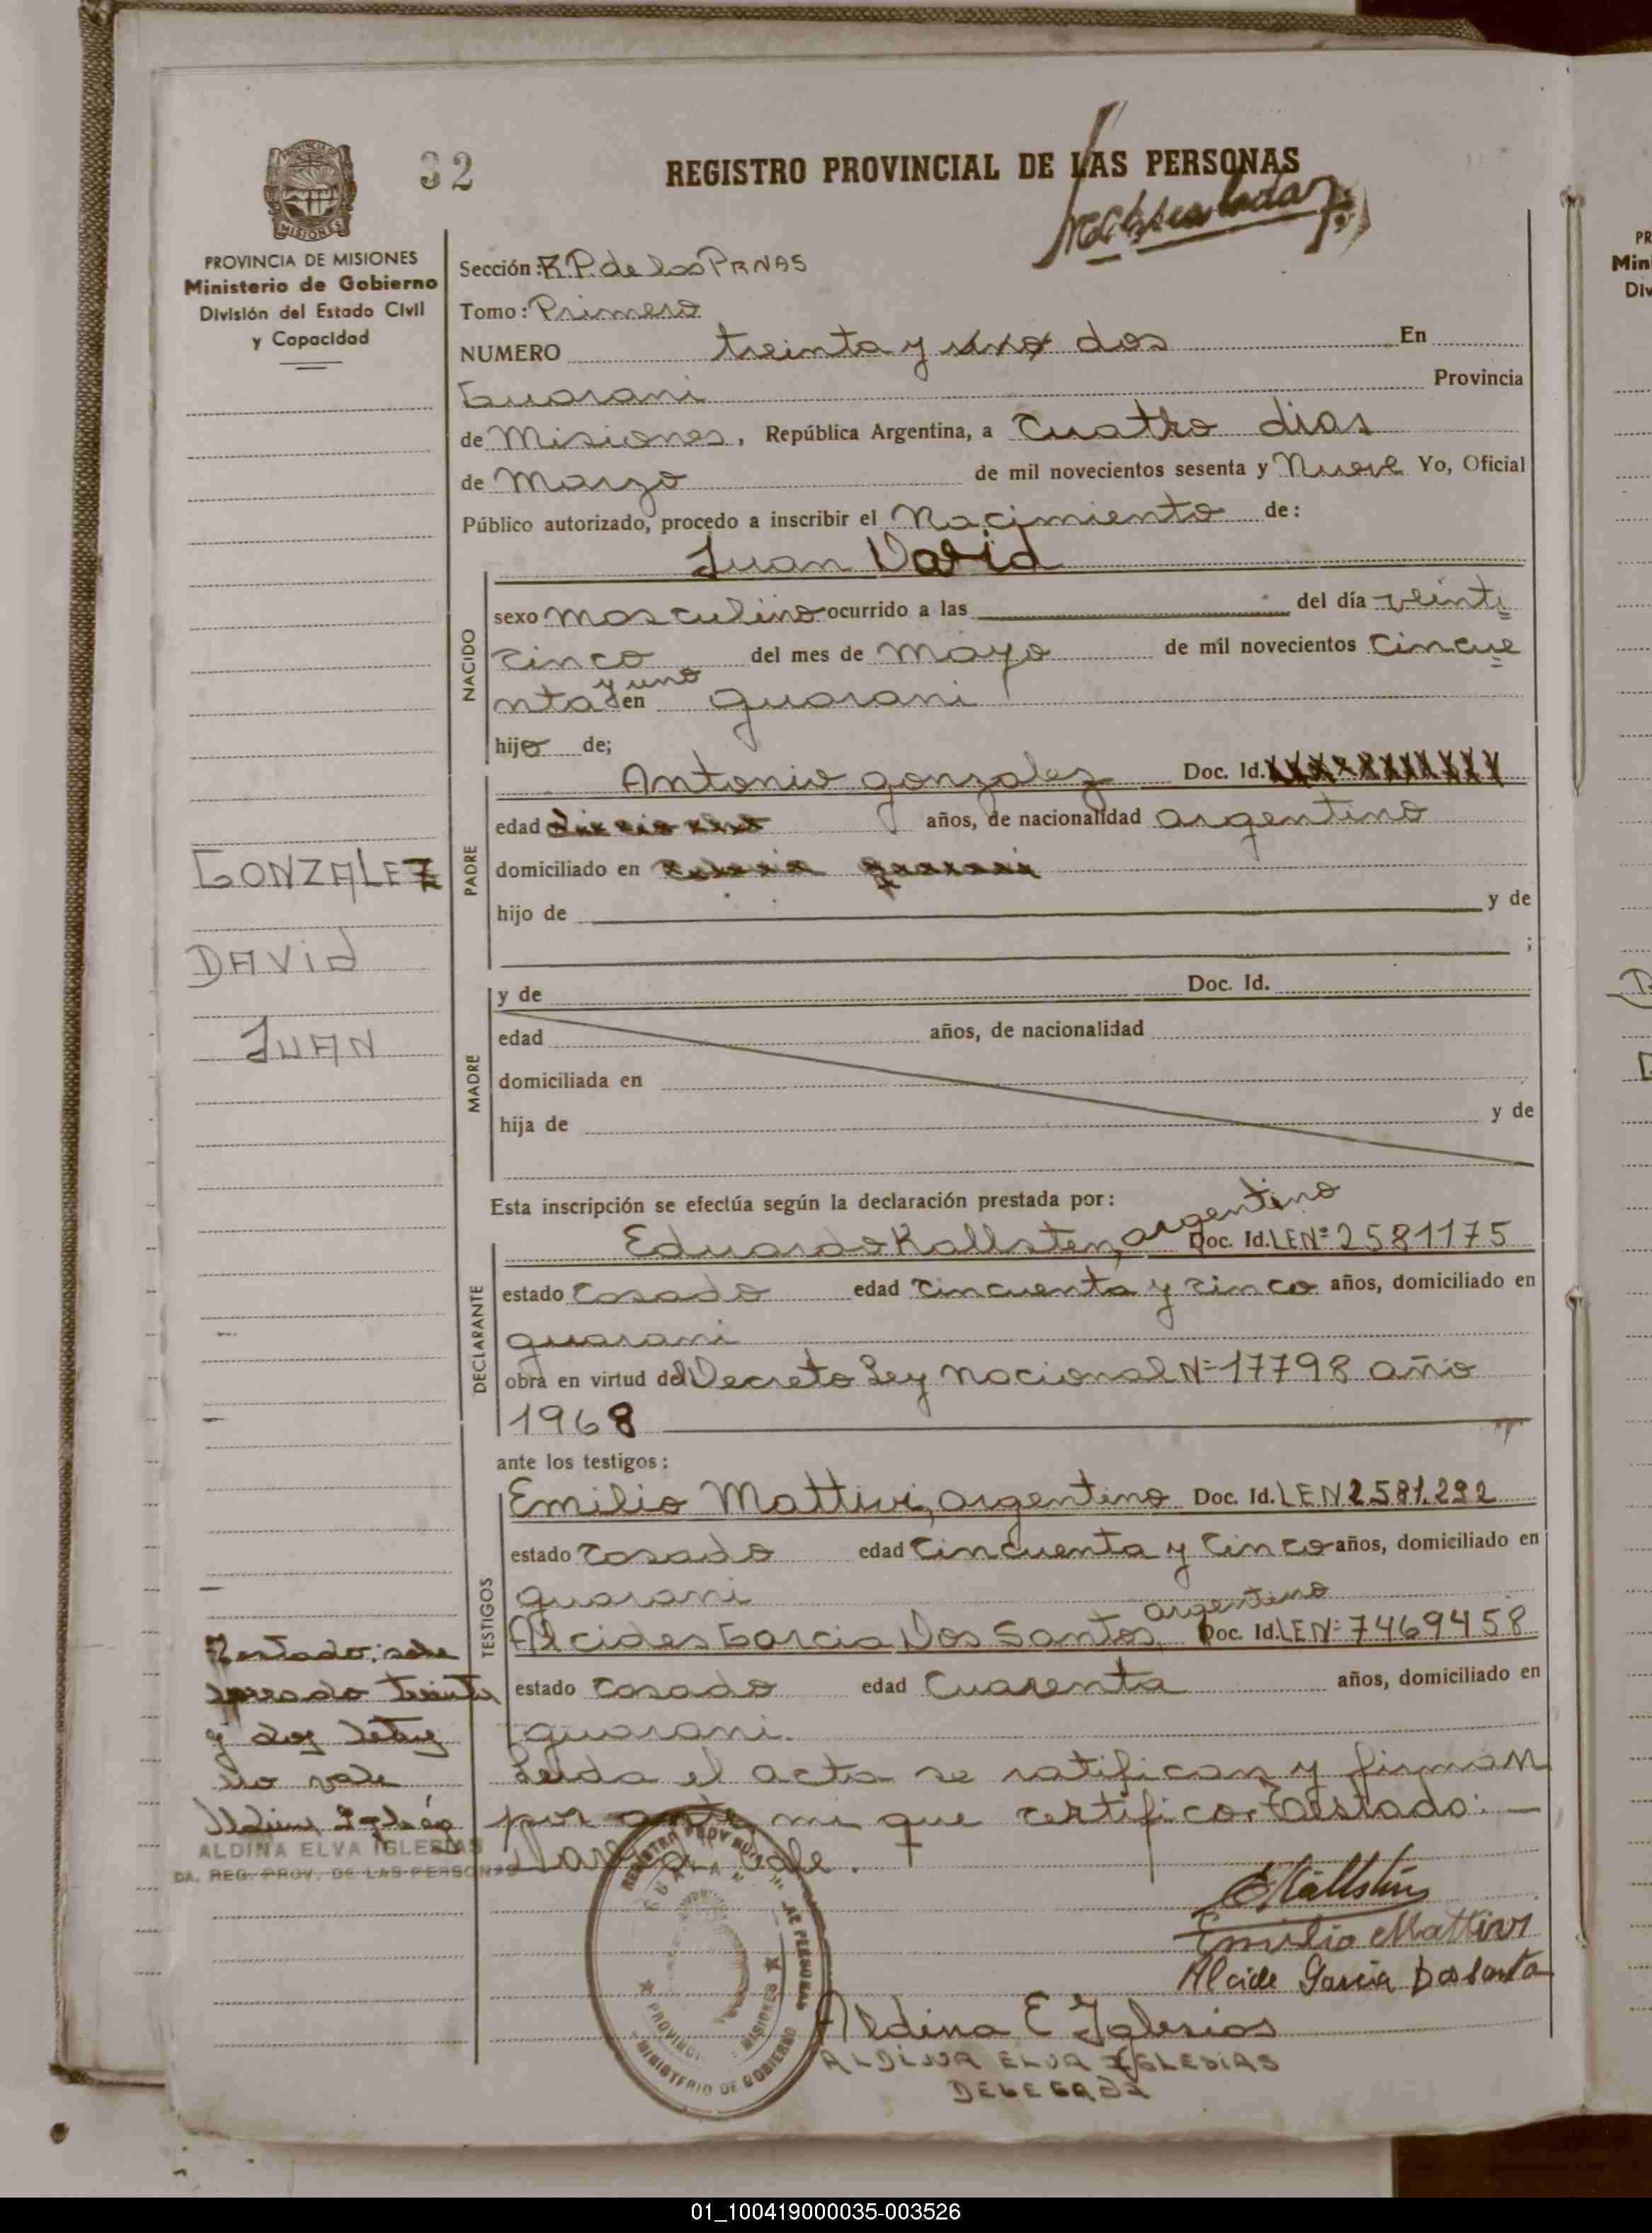 32
REGISTRO PROVINCIAL DE LAS PERSONAS
PROVINCIA DE MISIONES
Ministerio de Gobierno
División del Estado Civil
y Capacidad
Sección: R.P. de las PRNAS
Tomo: Primero
NUMERO treinta y uno dos En
Guarani Provincia
de Misiones, República Argentina, a Cuatro dias
de Marzo de mil novecientos sesenta y Nueve Yo, Oficial
Público autorizado, procedo a inscribir el Nacimiento de:
Juan David
NACIDO
sexo masculino ocurrido a las del día veinti
cinco del mes de mayo de mil novecientos Cincue
y uno
nta en guarani
hijo de;
PADRE
Antonio gonzalez Doc. Id. XXXXXXXXXXX
edad años, de nacionalidad argentino
domiciliado en guarani
hijo de y de
;
GONZALEZ
DAVID
JUAN
MADRE
y de Doc. Id.
edad años, de nacionalidad
domiciliada en
hija de y de
Esta inscripción se efectúa según la declaración prestada por:
DECLARANTE
Eduardo Kallsten, argentino Doc. Id. LENº 2581175
estado Casado edad Cincuenta y cinco años, domiciliado en
guarani
obra en virtud del Decreto Ley Nacional Nº 17798 año
1968
ante los testigos:
TESTIGOS
Emilio Mattivi, argentino Doc. Id. LEN 2.581.292
estado Casado edad Cincuenta y Cinco años, domiciliado en
guarani
Alcides Garcia Dos Santos, argentino Doc. Id. LENº 7469458
estado Casado edad Cuarenta años, domiciliado en
guarani.
Leida el acta se ratifican y firman
por ante mi que certifico. Testado: —
David Vale.
Testado: sobre
treinta
y dos
No vale
Aldina Iglesias
ALDINA ELVA IGLESIAS
DA. REG. PROV. DE LAS PERSONAS
EKällsten
Emilio Mattivi
Alcide Garcia Dos Santo
Aldina E Iglesias
ALDINA ELVA IGLESIAS
DELEGADA
PROVINCIA MISIONES
MINISTERIO DE GOBIERNO
01_100419000035-003526